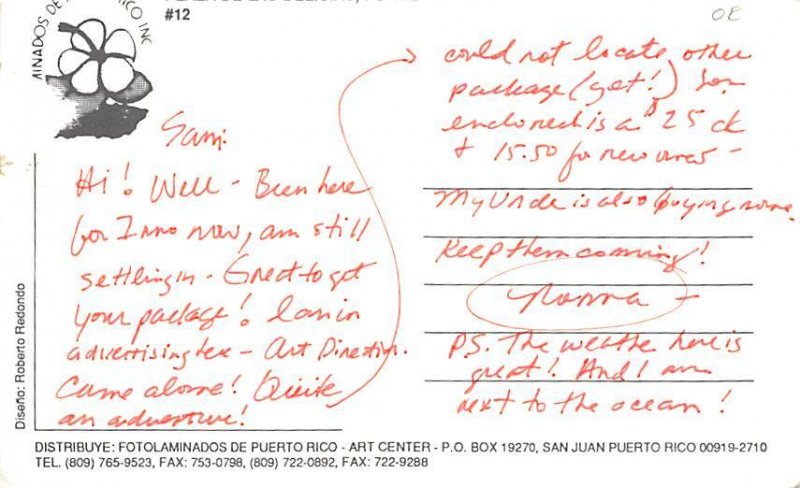 MINADOS DE P
RICO INC
#12
OE
Sam:
Hi! Well - Been here
for 2 mo now, am still
settling in - Great to get
your package! I am in
advertising here - Art Direction.
Came alone! Quite
an adventure!
could not locate other
package (yet!) So,
enclosed is a $25 ck
+ 15.50 for new ones -
My Uncle is also buying some.
Keep them coming!
P.S. The weather here is
great! And I am
next to the ocean!
Diseño: Roberto Redondo
DISTRIBUYE: FOTOLAMINADOS DE PUERTO RICO - ART CENTER - P.O. BOX 19270, SAN JUAN PUERTO RICO 00919-2710
TEL. (809) 765-9523, FAX: 753-0798, (809) 722-0892, FAX: 722-9288